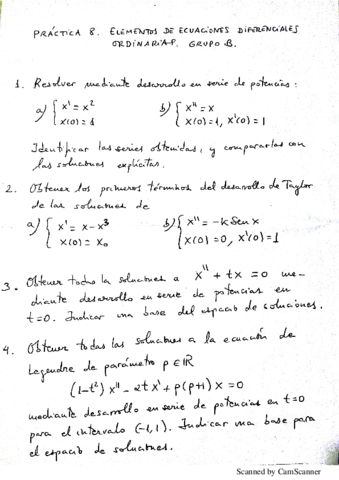 PRÁCTICA 8. ELEMENTOS DE ECUACIONES DIFERENCIALES
ORDINARIAS. GRUPO B.
1. Resolver mediante desarrollo en serie de potencias:
a) { x' = x² b) { x'' = x
x(0) = 1 x(0) = 1, x'(0) = 1
Identificar las series obtenidas, y compararlas con
las soluciones explícitas.
2. Obtener los primeros términos del desarrollo de Taylor
de las soluciones de
a) { x' = x - x³ b) { x'' = -k sen x
x(0) = x₀ x(0) = 0, x'(0) = 1
3. Obtener todas las soluciones a x'' + tx = 0 me-
diante desarrollo en serie de potencias en
t = 0. Indicar una base del espacio de soluciones.
4. Obtener todas las soluciones a la ecuación de
Legendre de parámetro p ∈ ℝ
(1-t²) x'' - 2t x' + p(p+1) x = 0
mediante desarrollo en serie de potencias en t=0
para el intervalo (-1, 1). Indicar una base para
el espacio de soluciones.
Scanned by CamScanner